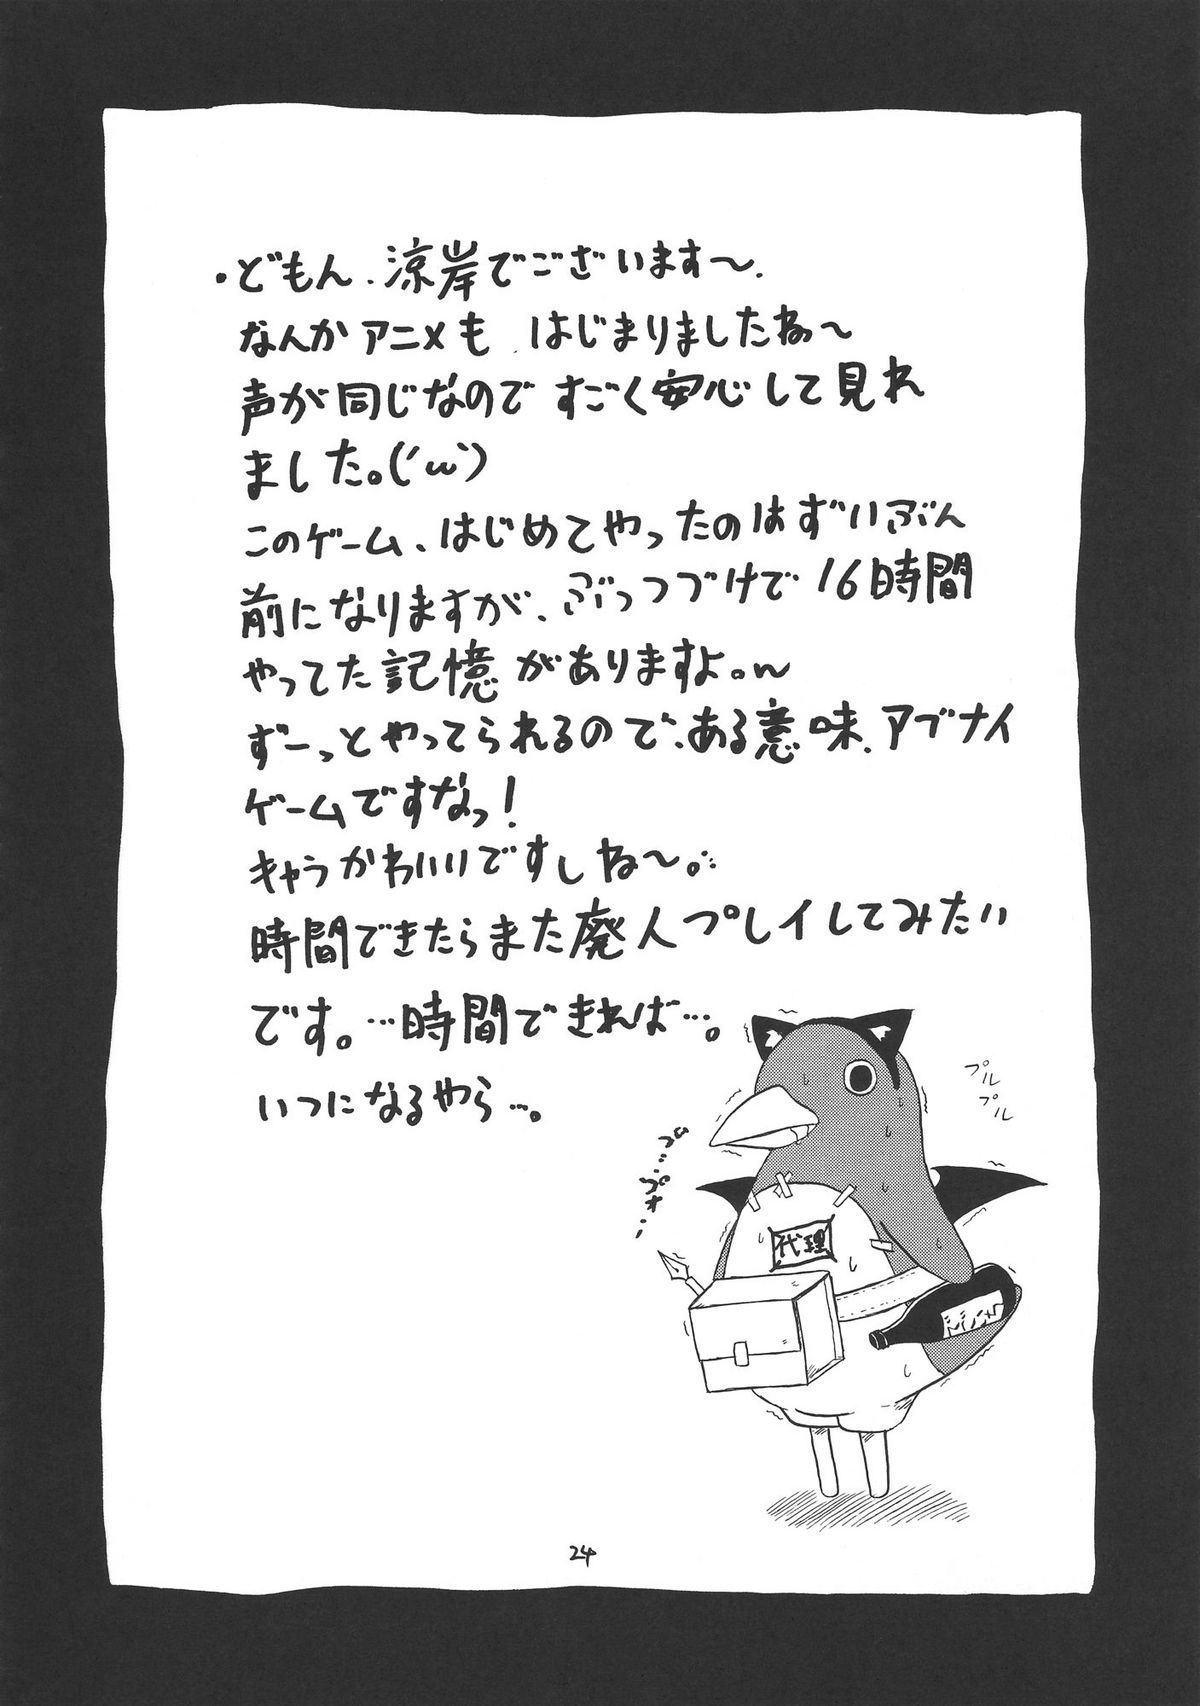 ・どもん、涼岸でございます〜。
なんかアニメも はじまりましたね〜
声が同じなので すごく安心して見れ
ました。(´ω`)
このゲーム、はじめてやったのはずいぶん
前になりますが、ぶっつづけで16時間
やってた記憶がありますよ。w
ずーっとやってられるので、ある意味、アブナイ
ゲームですなっ!
キャラかわいいですしね〜。
時間できたらまた廃人プレイしてみたい
です。…時間できれば…。
いつになるやら…。
プル
プル
代理
24